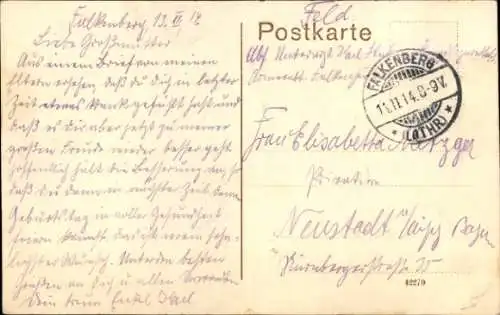 Falkenberg 13. II. 14
Liebe Großmutter
Aus einem Brief von meinen
Eltern ersehen, daß du dich in letzter
Zeit etwas krank gefühlt hast und
daß es dir aber jetzt zu meiner
großen Freude wieder besser geht
Hoffentlich hält die Besserung an, so
daß du dann in nächster Zeit dein
Geburtstag in voller Gesundheit
feiern kannst, das ist mein sehn-
lichster Wunsch. Unter den besten
Grüßen an dich u. allen Verwandten
Dein treuer Enkel Karl
Feld
Postkarte
Abs. Unterarzt Karl
Falkenberg
FALKENBERG
11.11.14. 8-9V.
* (LOTHR) *
Frau Elisabetha Metzger
Privatiere
Neustadt a/Aisch Bayern
Nürnbergerstraße 35
42270